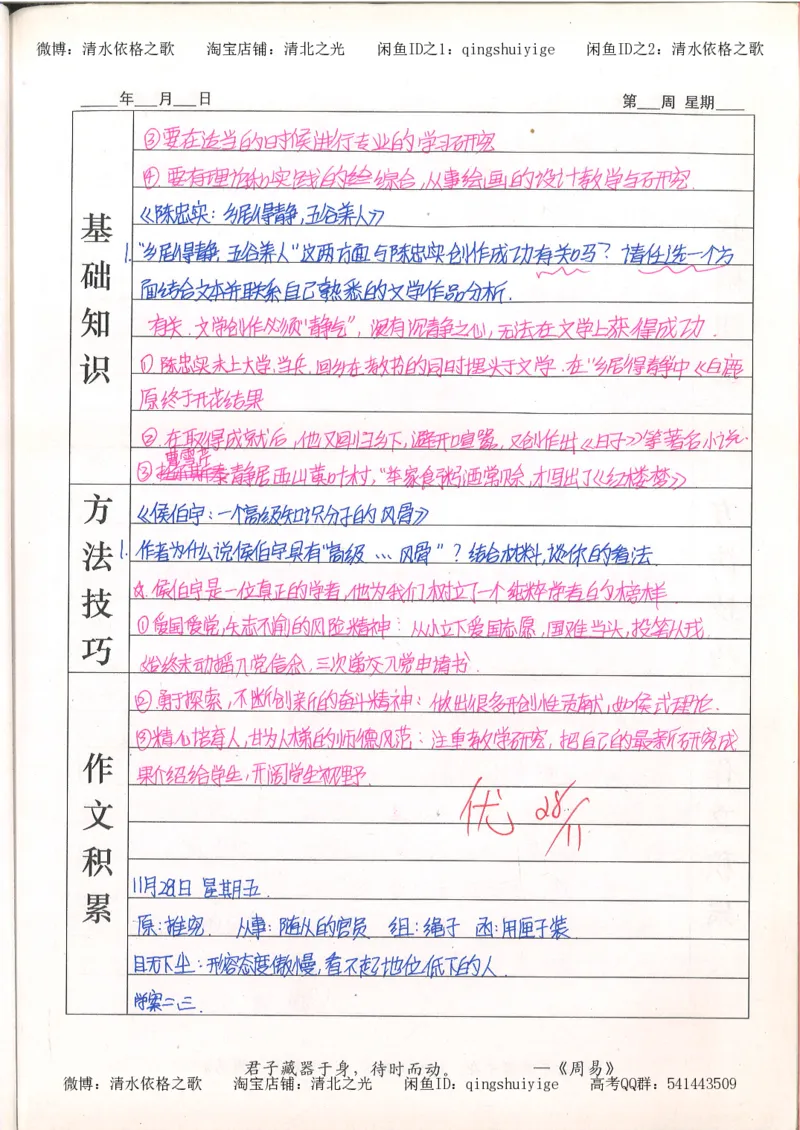 微博：清水依格之歌 淘宝店铺：清北之光 闲鱼ID之1：qingshuiyige 闲鱼ID之2：清水依格之歌
____年___月___日 第___周 星期____
基础知识
③要在适当的时候进行专业的学习研究
④.要有理论和实践的综合,从事绘画的设计教学与研究.
《陈忠实：乡居得静,五谷养人》
1."乡居得静,五谷养人"这两方面与陈忠实创作成功有关吗？请任选一个方
面结合文本并联系自己熟悉的文学作品分析.
有关.文学创作必须"静气"，没有沉静之心,无法在文学上获得成功.
①陈忠实未上大学,当兵,回乡在教书的同时埋头于文学.在"乡居得静中《白鹿
原终于开花结果
②.在取得成就后,他又回归乡下,避开喧嚣,又创作出《日子》等著名小说.
曹雪芹
③静居西山黄叶村,"举家食粥酒常赊,才写出了《红楼梦》
方法技巧
《侯伯宇:一个高级知识分子的风骨》
1.作者为什么说侯伯宇具有"高级…风骨"？结合材料,谈你的看法.
侯伯宇是一位真正的学者,他为我们树立了一个纯粹学者的榜样.
①爱国爱党,矢志不渝的风险精神：从小立下爱国志愿,国难当头,投笔从戎.
始终未动摇入党信念,三次递交入党申请书.
作文积累
②.勇于探索,不断创新的奋斗精神：做出很多开创性贡献,如侯式理论.
③精心培育人,甘为人梯的师德风范：注重教学研究,把自己的最新研究成
果介绍给学生,开阔学生视野.
优 28/11
11月28日 星期五.
原:推究. 从事:随从的官员 组:绳子 函:用匣子装.
目无下尘:形容态度傲慢,看不起地位低下的人.
学案二三.
君子藏器于身，待时而动。 —《周易》
微博：清水依格之歌 淘宝店铺：清北之光 闲鱼ID：qingshuiyige 高考QQ群：541443509